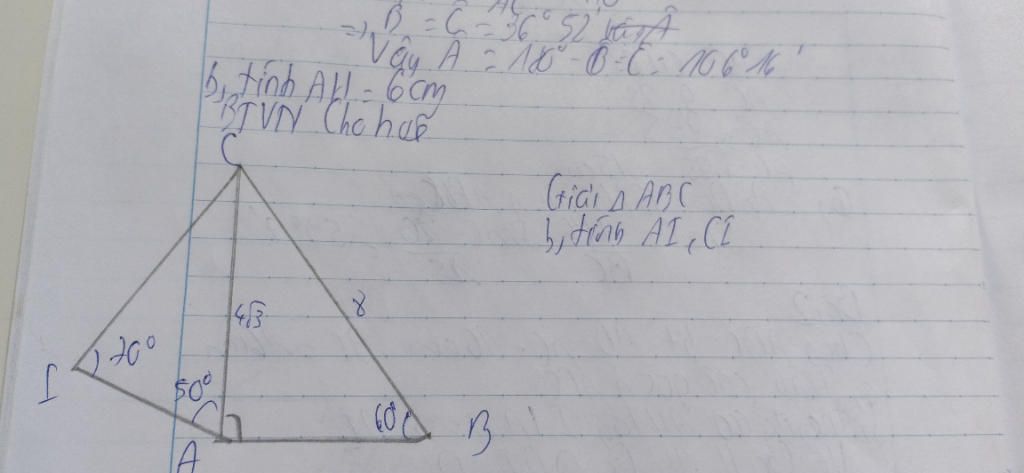 => B̂ = Ĉ = 36° 52'
Vậy Â = 180° - B̂ - Ĉ = 106° 16'
b, tính AH = 6cm
BTVN Cho hvẽ
C
Giải △ ABC
b, tính AI, CI
4√3
8
70°
I
50°
60°
B
A